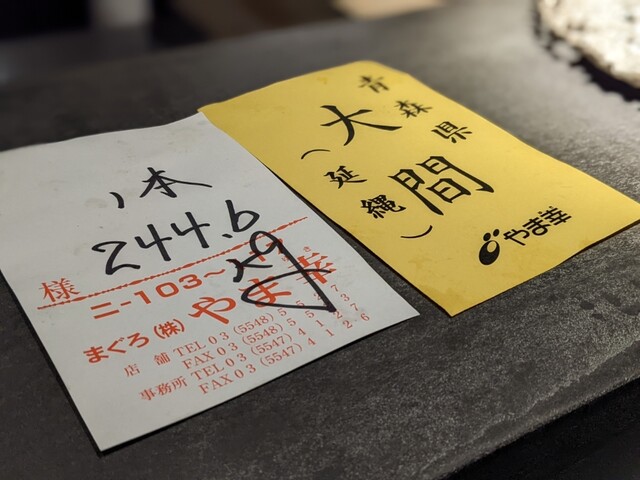 1本
244.6
kg
様
ニ-103~
まぐろ(株)やま幸
店舗 TEL 03(5548)5537
FAX 03(5548)5533
事務所 TEL 03(5547)4127
FAX 03(5547)4126
青森県
大間
(延縄)
やま幸